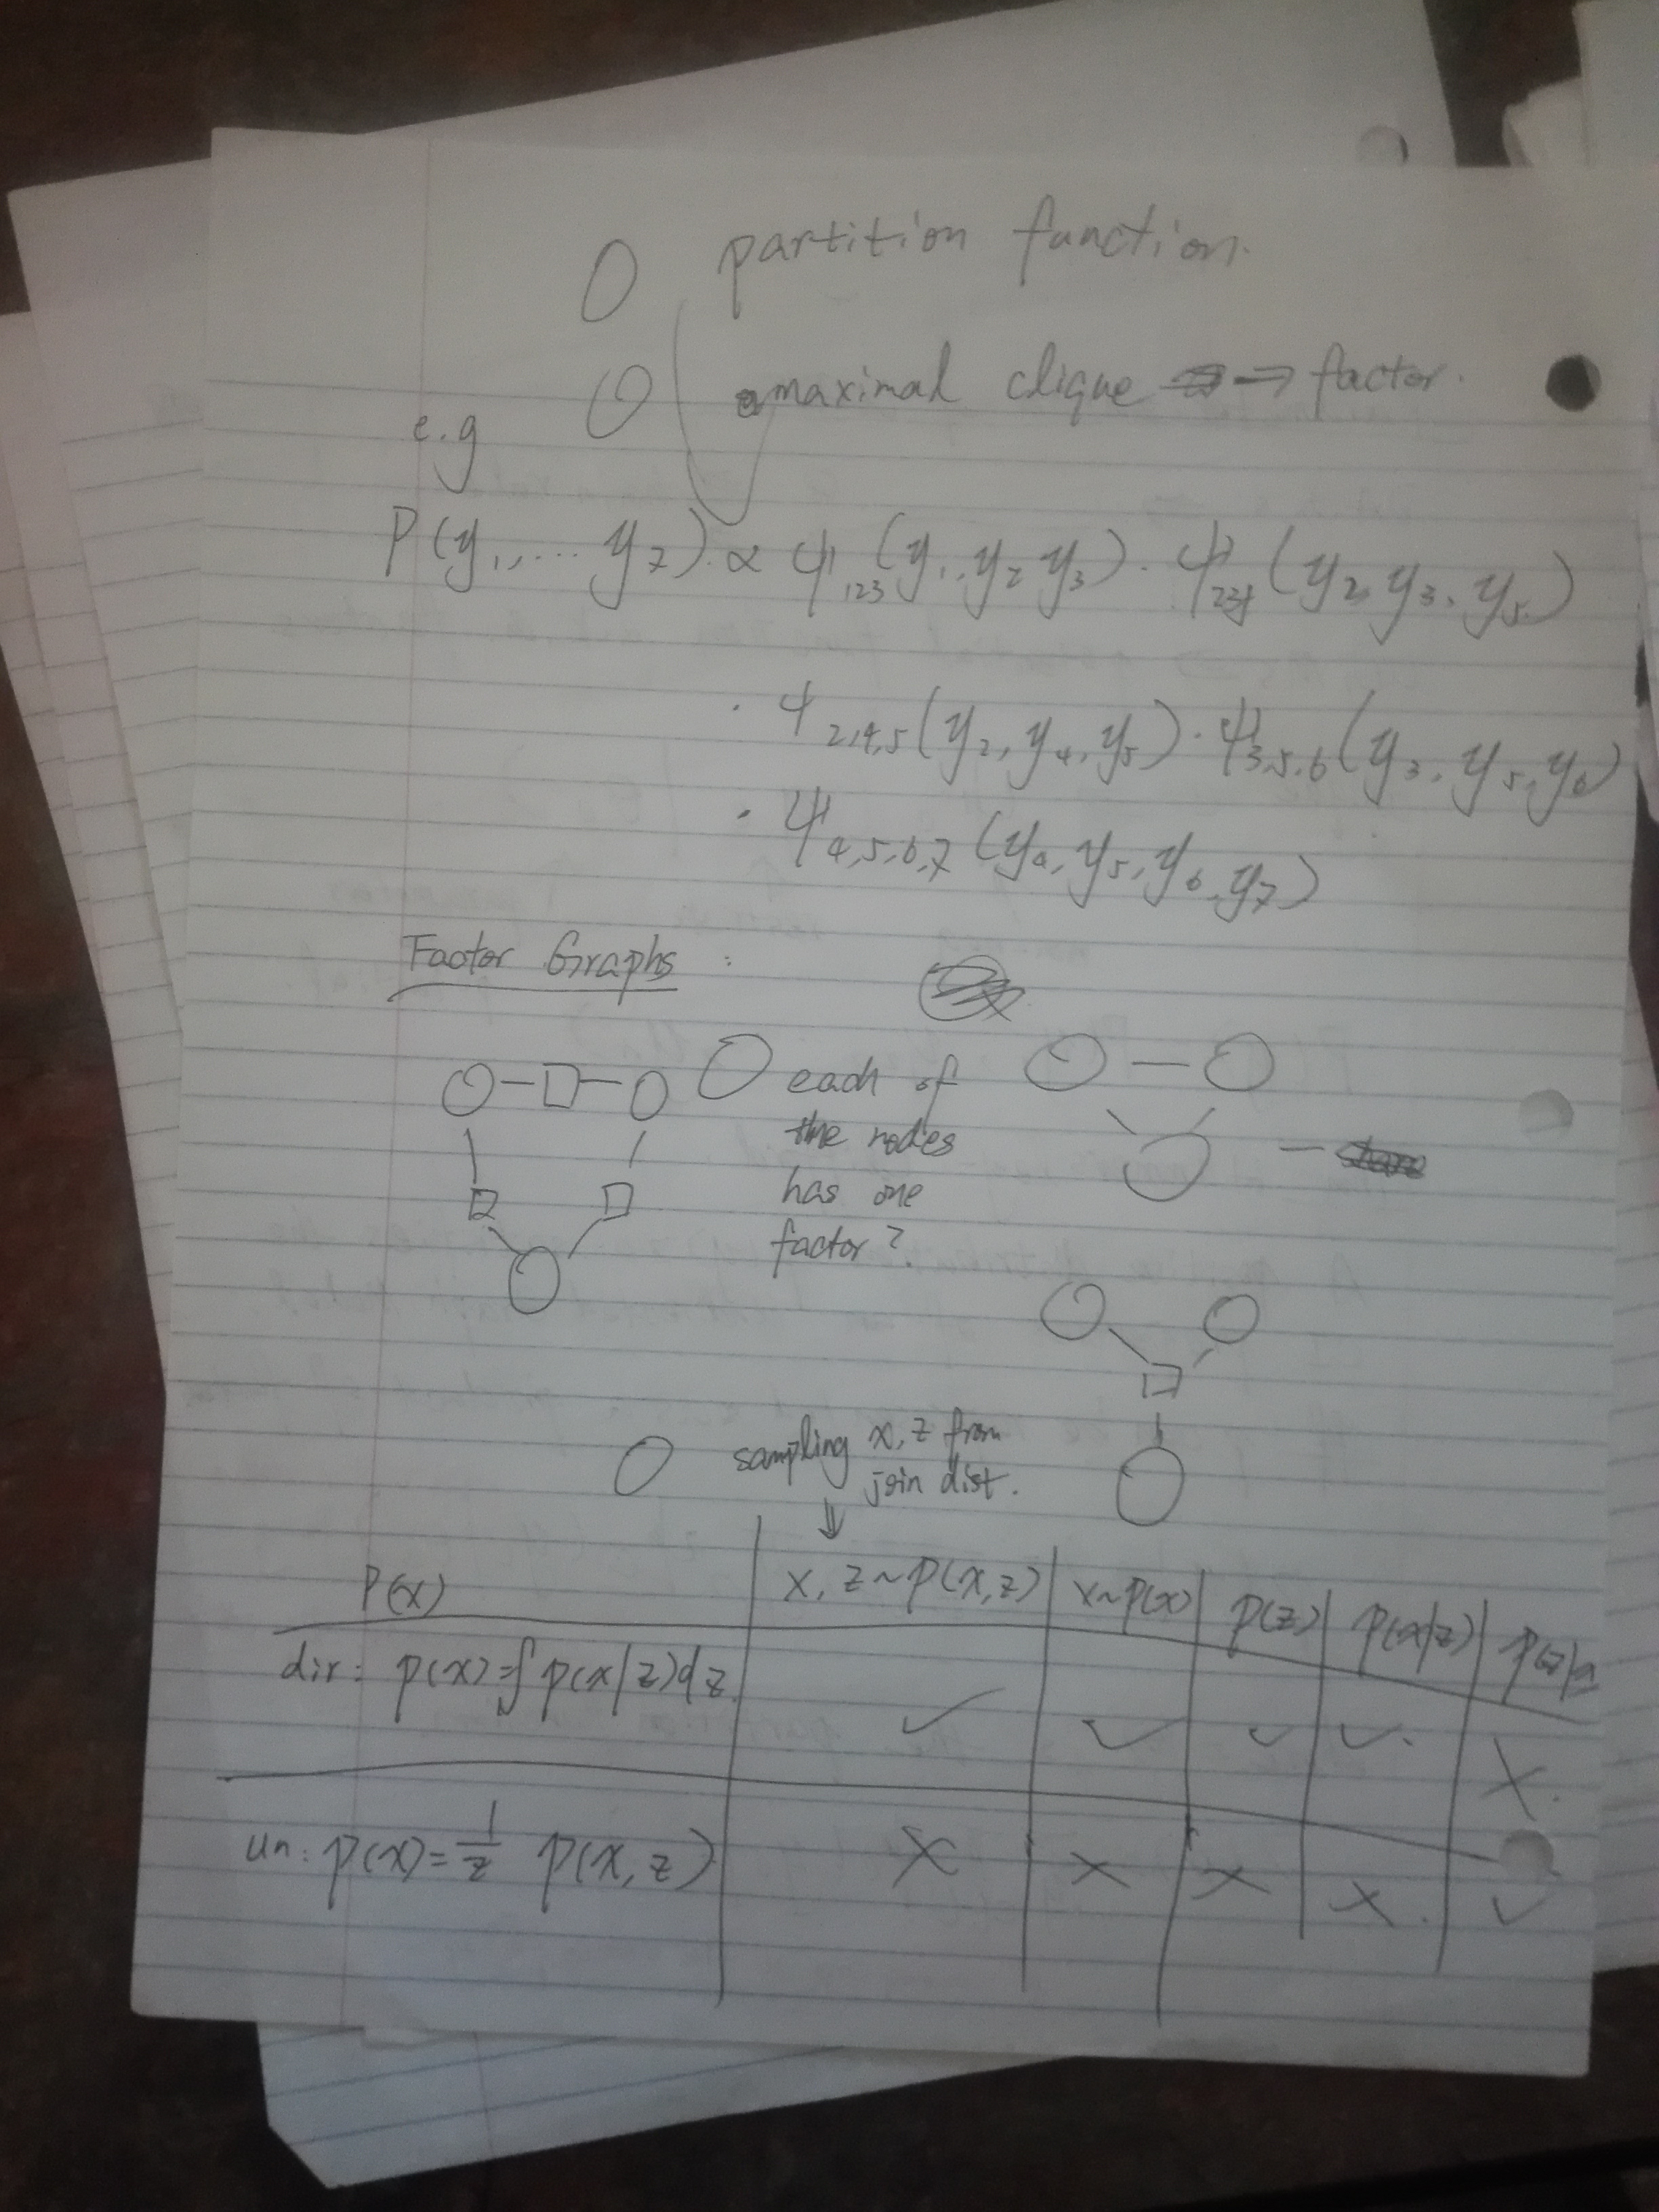 partition function.
maximal clique → factor.
e.g
P(y₁,.... y₇) ∝ ψ₁₂₃(y₁,y₂ y₃) · ψ (y₂ y₃, y₅)
· ψ₂,₄,₅(y₂,y₄,y₅) · ψ₃,₅,₆(y₃,y₅,y₆)
· ψ₄,₅,₆,₇(y₄,y₅,y₆,y₇)
Factor Graphs :
each of
the nodes
has one
factor?
sampling x,z from
join dist.
⇓
P(x) x, z~p(x,z) x~p(x) p(z) p(x|z)
dir: p(x)=∫p(x|z)dz ✓ ✓ ✓ ✓ X
un: p(x)=1/z p(x,z) X X X X ✓